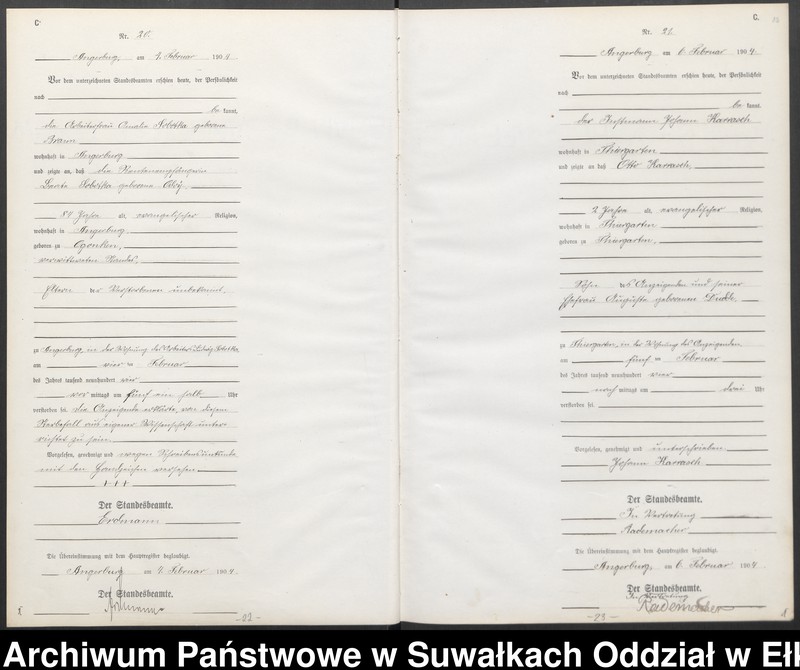 C
Nr. 20.
Angerburg, am 4. Februar 1904
Vor dem unterzeichneten Standesbeamten erschien heute, der Persönlichkeit
nach
be kannt,
die Arbeiterfrau Amalie Sobottka geborene
Braun
wohnhaft in Angerburg
und zeigte an, daß die Rentenempfängerin
Sobottka geborene
Jahre alt, evangelischer Religion,
wohnhaft in Angerburg,
geboren zu Ogonken,
verwittweten Standes,
Eltern der Verstorbenen unbekannt,
zu Angerburg, in der Wohnung des Arbeiters Ludwig Sobottka
am vier ten Februar
des Jahres tausend neunhundert vier
vor mittags um fünf ein halb Uhr
verstorben sei. Die Anzeigende erklärte, von diesem
Sterbefall aus eigener Wissenschaft unter-
richtet zu sein.
Vorgelesen, genehmigt und wegen Schreibensunkunde
mit den Handzeichen versehen
+++
Der Standesbeamte.
Erdmann
Die Übereinstimmung mit dem Hauptregister beglaubigt.
Angerburg am 4. Februar 1904.
Der Standesbeamte.
Erdmann
-22-
C.
Nr. 21.
Angerburg am 6. Februar 1904.
Vor dem unterzeichneten Standesbeamten erschien heute, der Persönlichkeit
nach
be kannt,
der Instmann Johann Karrasch
wohnhaft in Thiergarten
und zeigte an, daß Otto Karrasch,
2 Jahre alt, evangelischer Religion,
wohnhaft in Thiergarten
geboren zu Thiergarten,
Sohn des Anzeigenden und seiner
Ehefrau Auguste geborenen
zu Thiergarten, in der Wohnung des Anzeigenden
am fünf ten Februar
des Jahres tausend neunhundert vier
nach mittags um drei Uhr
verstorben sei.
Vorgelesen, genehmigt und unterschrieben
Johann Karrasch
Der Standesbeamte.
In Vertretung
Rademacher
Die Übereinstimmung mit dem Hauptregister beglaubigt.
Angerburg, am 6. Februar 1904
Der Standesbeamte.
In Vertretung
Rademacher
-23-
Archiwum Państwowe w Suwałkach Oddział w Eł